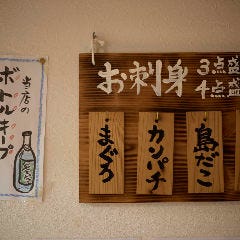 当店の
ボトルキープ
お刺身
3点盛
4点盛
島だこ
カンパチ
まぐろ